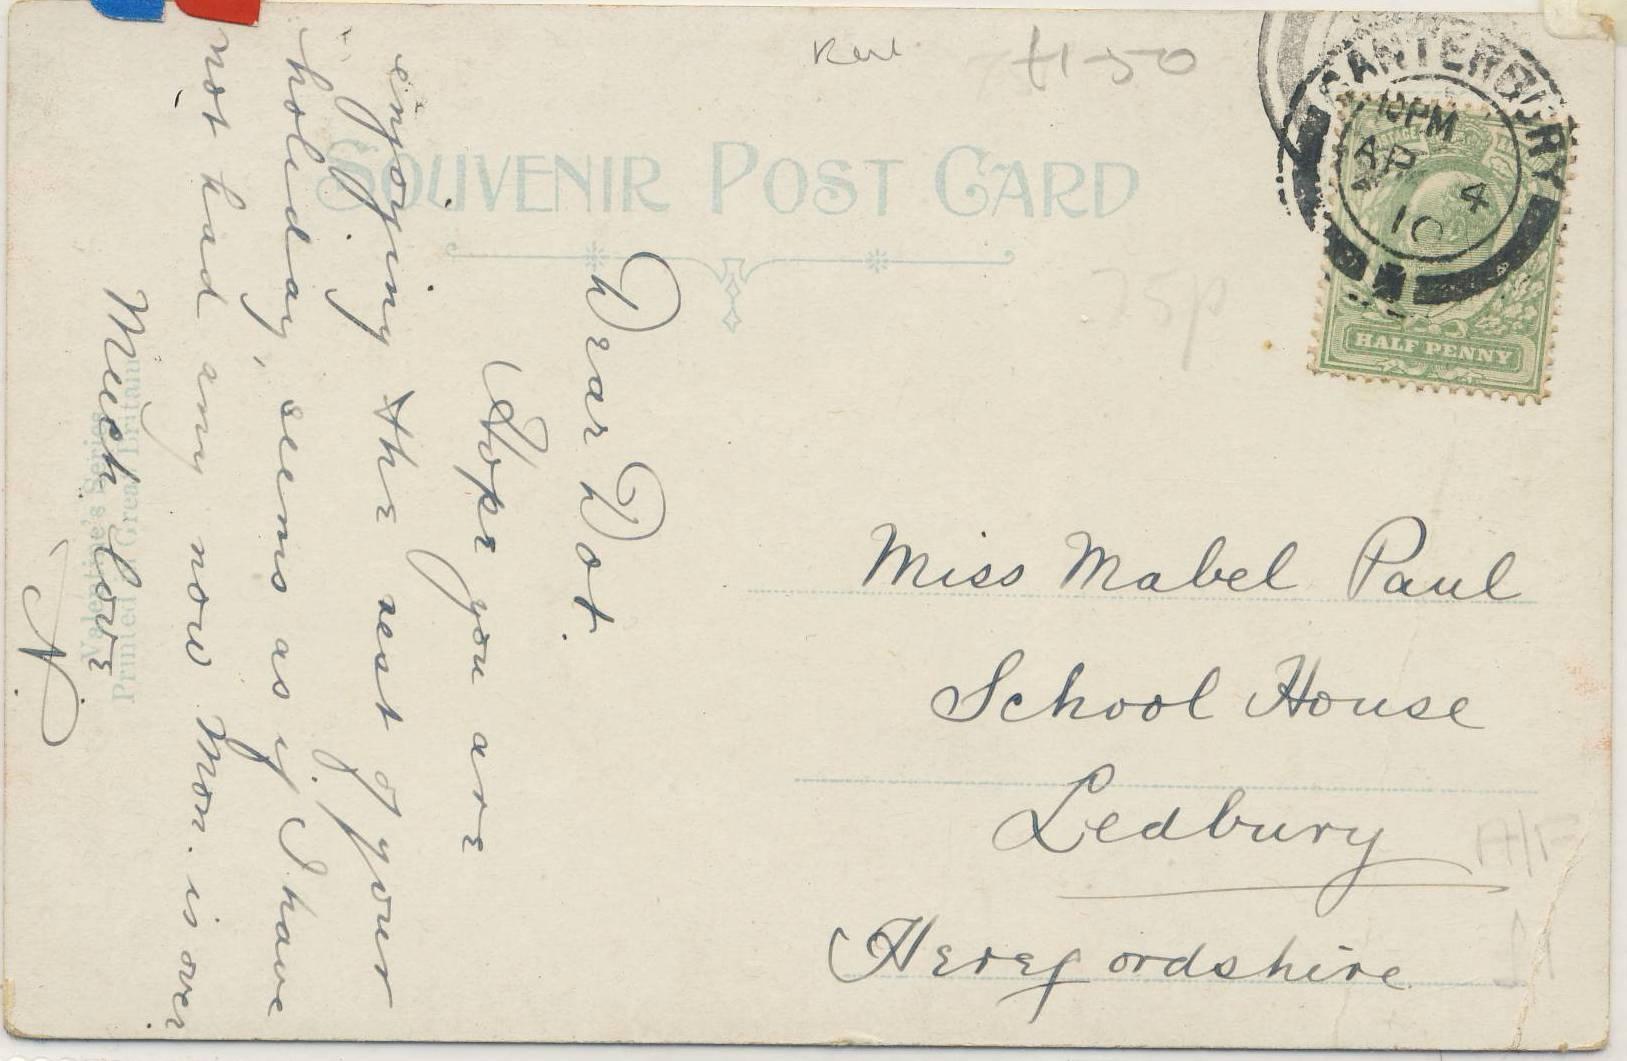 SOUVENIR POST CARD
Kent
£1-50
75p
CANTERBURY
10 PM
AP 4
10
HALF PENNY
Dear Dot.
Hope you are
enjoying the rest of your
holiday, seems as if I have
not had any now Mon. is over.
Much love
N.
Valentine's Series
Printed Great Britain
Miss Mabel Paul
School House
Ledbury
Herefordshire
A/F